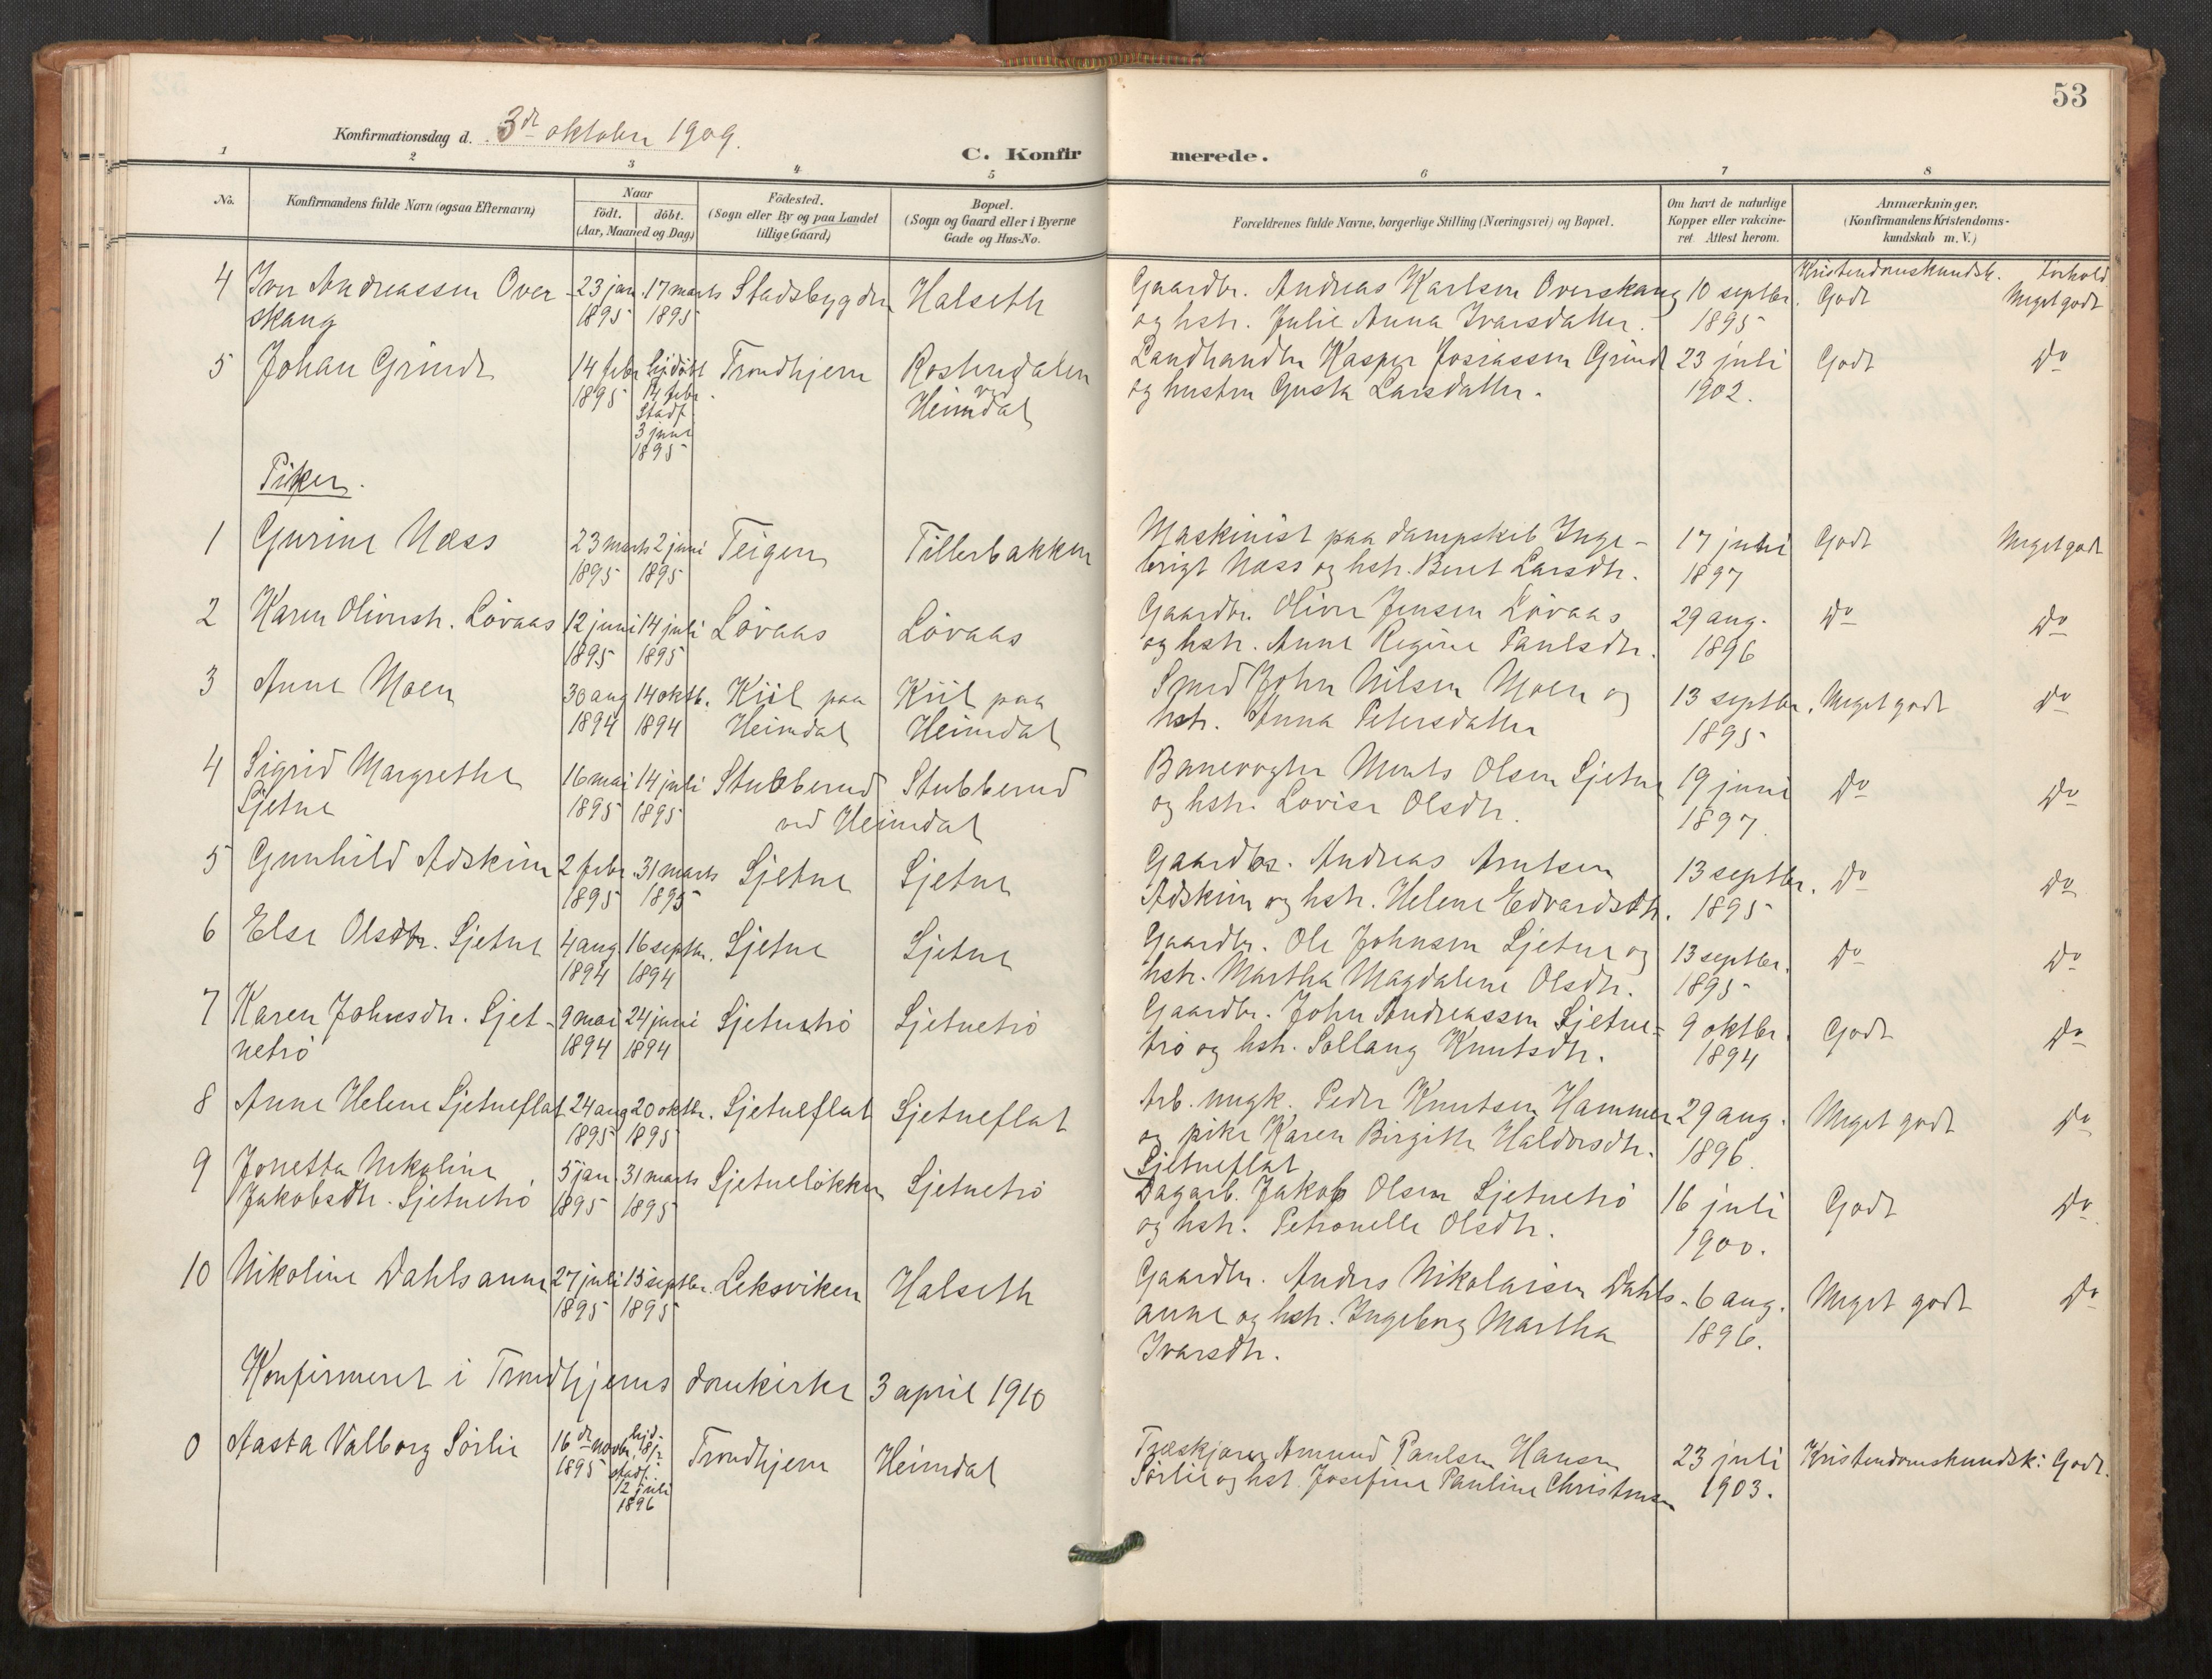 53
Konfirmationsdag d. 3dr oktober 1909.
C. Konfirmerede.
1 2 3 4 5 6 7 8
No.
Konfirmandens fulde Navn (ogsaa Efternavn)
Naar
födt. döbt.
(Aar, Maaned og Dag)
Födested.
(Sogn eller By og paa Landet
tillige Gaard)
Bopæl.
(Sogn og Gaard eller i Byerne
Gade og Hus-No.
Forældrenes fulde Navne, borgerlige Stilling (Næringsvei) og Bopæl.
Om havt de naturlige
Kopper eller vakcine-
ret Attest herom.
Anmærkninger.
(Konfirmandens Kristendoms-
kundskab m. V.)
Kristendomskundsk. Forhold
4 Iver Andreassen Over- 23 jan. 17 marts Stadsbygden Halseth Gaardbr. Andreas Karlsen Overskaug 10 septbr. Godt Meget godt
skaug 1895 1895 og hstr. Julie Anna Ivarsdatter. 1895
5 Johan Grindt 14 febr. hjdöbt Trondhjem Rostendalen Landhandler Kasper Josiassen Grindt 23 juli Godt Do
1895 14 febr. ved og hustru Gusta Larsdatter. 1902.
Stadf. Heimdal
3 juni
1895
Piker.
1 Gurine Næss 23 marts 2 juni Teigen Tillerbakken Maskinist paa dampskib Inge- 17 juli Godt Meget godt
1895 1895 brigt Næss og hstr. Beret Larsdtr. 1897
2 Karen Oliversdtr. Lövaas 12 juni 14 juli Lövaas Lövaas Gaardbr. Oliver Jensen Lövaas 29 aug. Do Do
1895 1895 og hstr. Anne Regine Paulsdtr. 1896
3 Anne Moen 30 aug 14 oktb. Kiil paa Kiil paa Smed John Nilsen Moen og 13 septbr. Meget godt Do
1894 1894 Heimdal Heimdal hstr. Anna Petersdatter 1895
4 Sigrid Margrethe 16 mai 14 juli Stubberud Stubberud Banevogter Ments Olsen Sjetne 19 juni Do Do
Sjetne 1895 1895 ved Heimdal og hstr. Lovise Olsdtr. 1897.
5 Gunhild Adskim 2 febr. 31 marts Sjetne Sjetne Gaardbr. Andreas Arntsen 13 septbr. Do Do
1895 1895 Adskim og hstr. Helene Edvardsdtr. 1895
6 Else Olsdtr. Sjetne 4 aug. 16 septbr. Sjetne Sjetne Gaardbr. Ole Johnsen Sjetne og 13 septbr. Do Do
1894 1894 hstr. Martha Magdalene Olsdtr. 1895
7 Karen Johnsdtr. Sjet- 9 mai 24 juni Sjetnetrö Sjetnetrö Gaardbr. John Andreassen Sjetne- 9 oktbr. Godt Do
netrö 1894 1894 trö og hstr. Sollaug Knutsdtr. 1894
8 Anne Helene Sjetneflat 24 aug 20 oktbr. Sjetneflat Sjetneflat Arb. ungk. Peder Knutsen Hammer 29 aug. Meget godt Do
1895 1895 og pike Karen Birgitte Haldorsdtr. 1896.
Sjetneflat
9 Jonetta Nikoline 5 jan. 31 marts Sjetnelökken Sjetnetrö Dagarb. Jakob Olsen Sjetnetrö 16 juli Godt Do
Jakobsdtr. Sjetnetrö 1895 1895 og hstr. Petronelle Olsdtr. 1900.
10 Nikoline Dahlsaune 27 juli 15 septbr. Leksviken Halseth Gaardbr. Anders Nikolaisen Dahls- 6 aug. Meget godt Do
1895 1895 aune og hstr. Ingeborg Martha 1896.
Ivarsdtr.
Konfirmeret i Trondhjems domkirke 3 april 1910
0 Aasta Valborg Sörlie 16de novbr. hjd. Trondhjem Heimdal Træskjærer Amund Paulsen Hansen 23 juli Kristendomskundsk: Godt.
1895 18/12 Sörlie og hst. Josefine Pauline Christensen 1903.
stadf.
12 juli
1896